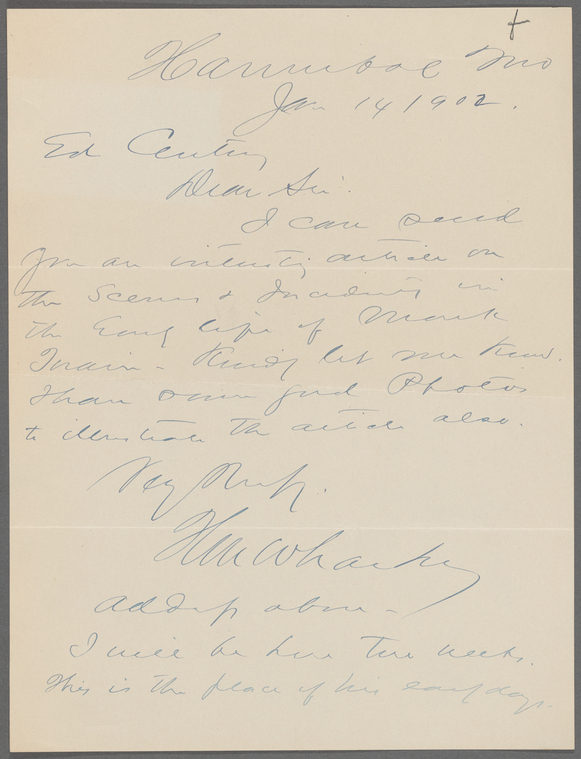 Hannibal Mo
Jan 14 1902.
Ed Century
Dear Sir:
I can send
you an interesting article on
the Scenes & Incidents in
the Early life of Mark
Twain - Kindly let me know.
I have some good Photos
to illustrate the article also.
Very Respy.
Address above -
I will be here two weeks.
This is the place of his early days.